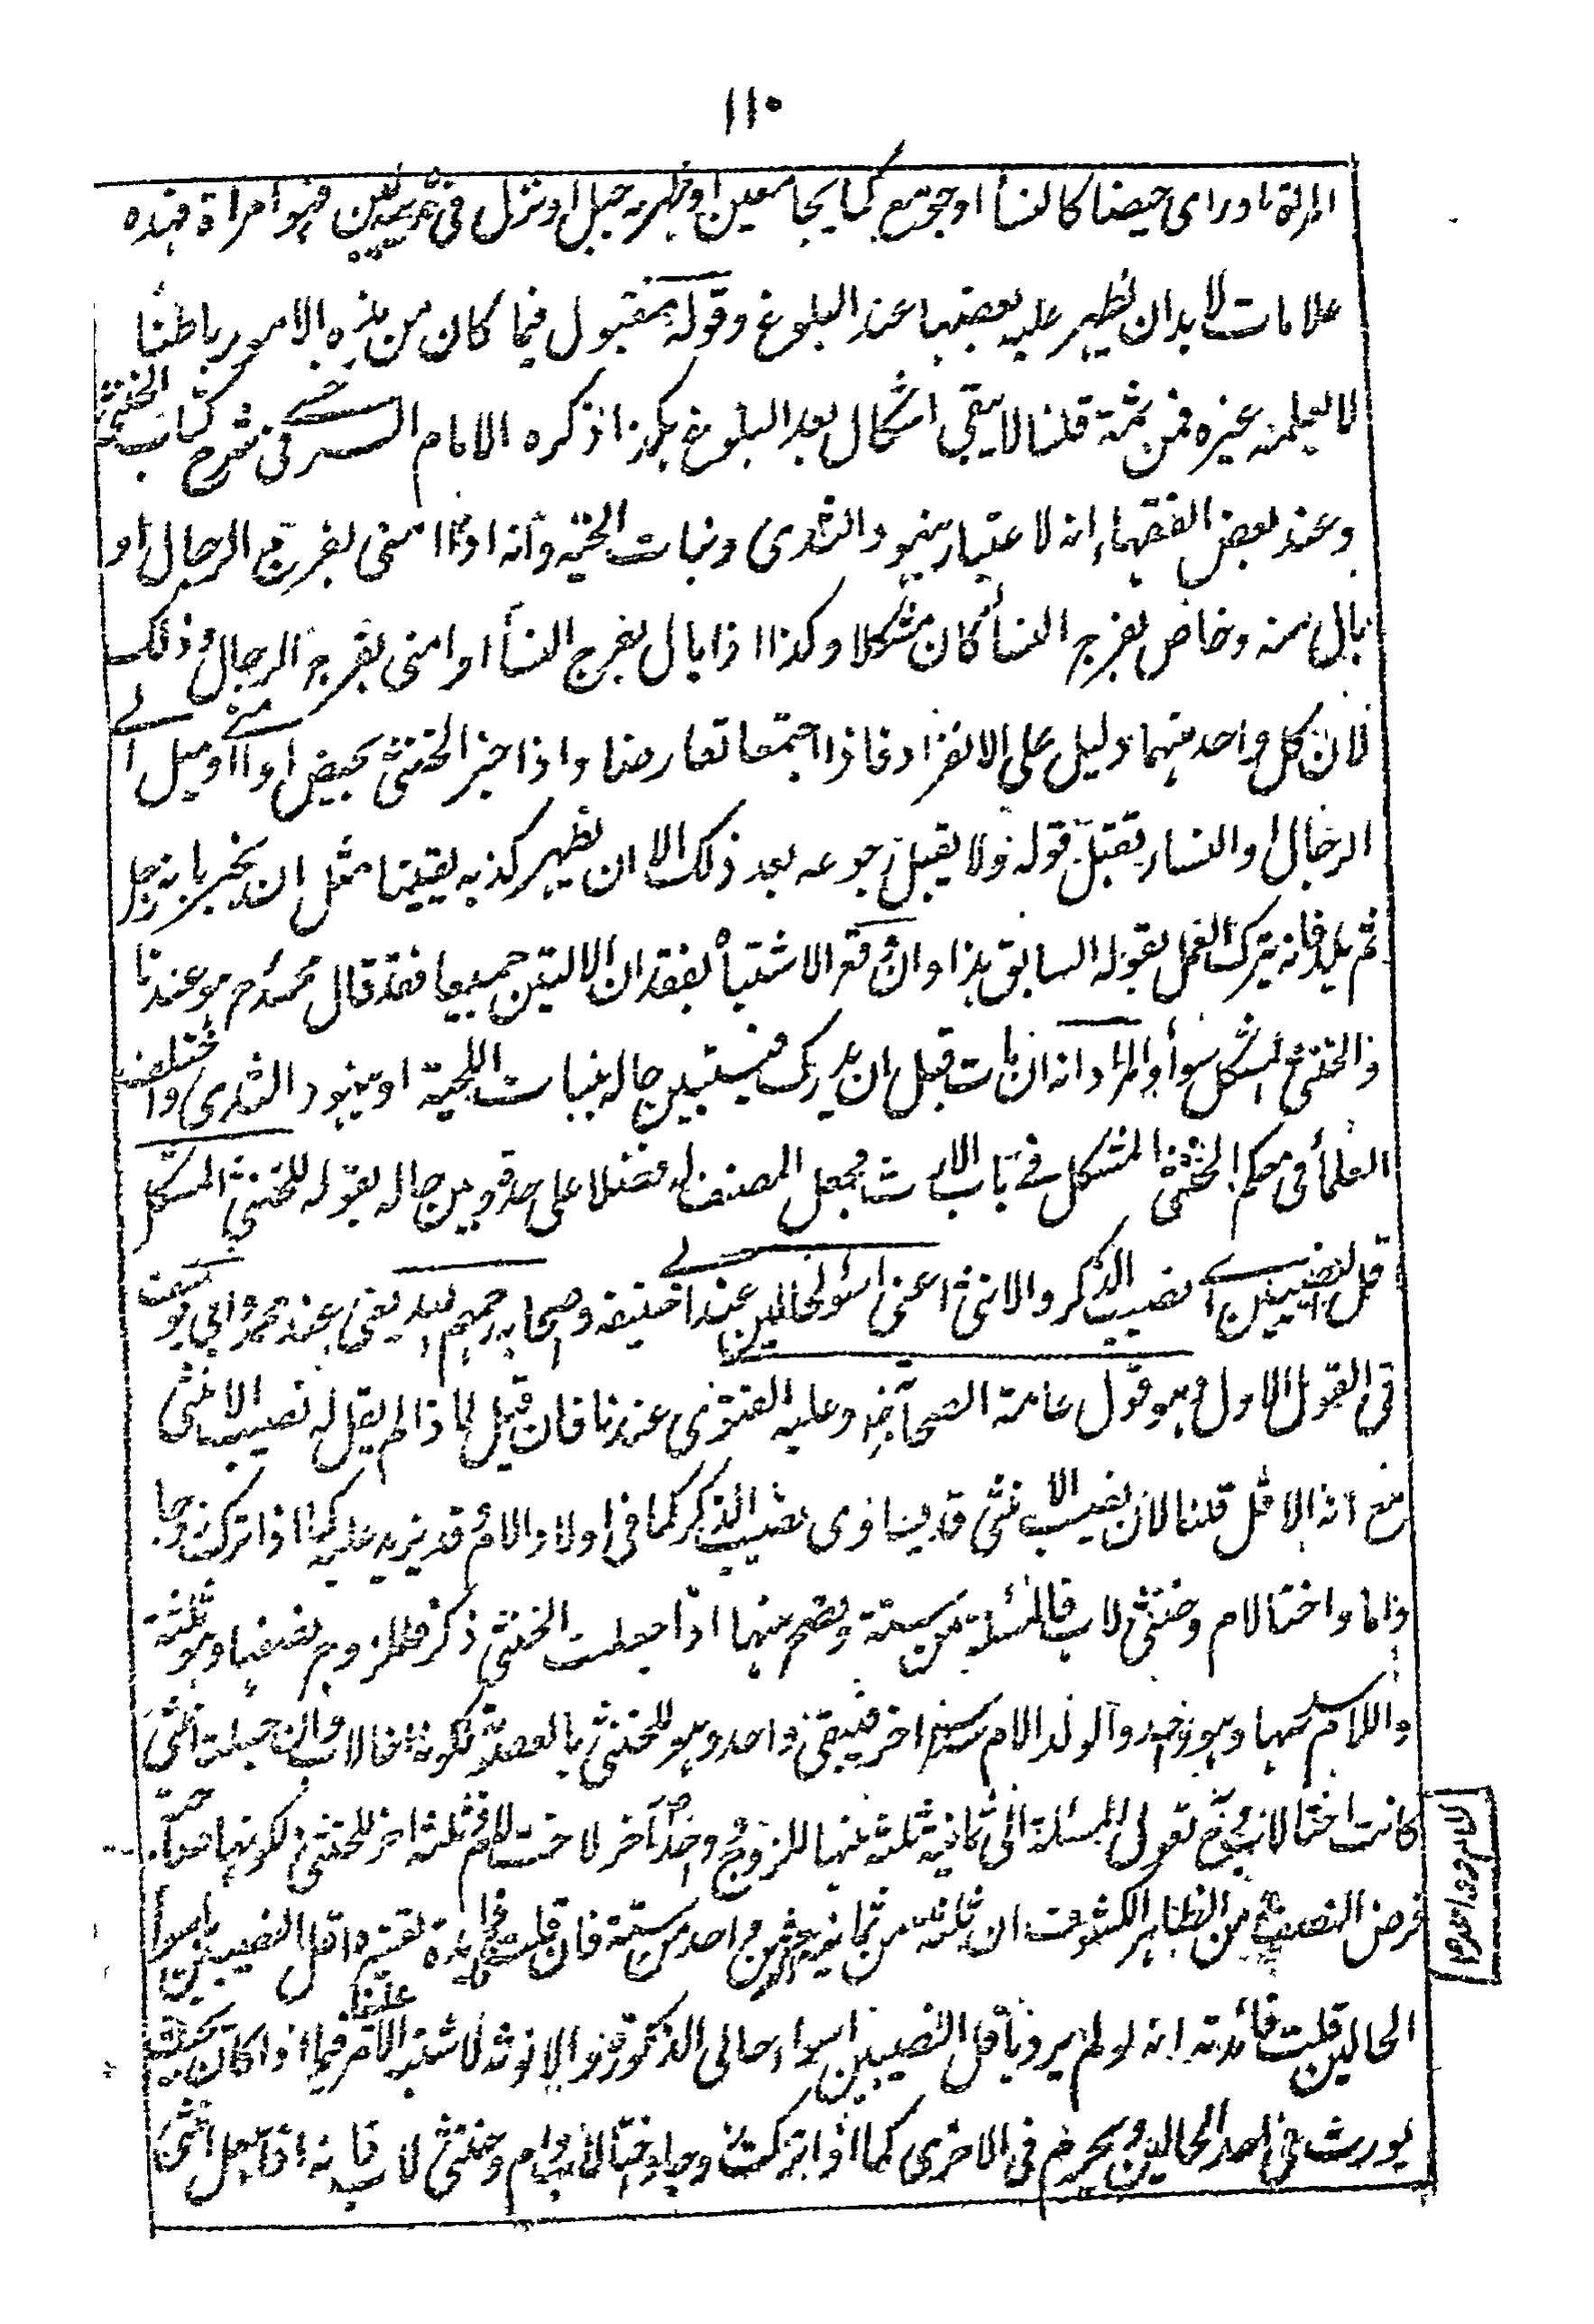 ١١٠
المرأة او رأى حيضا كالنسأ او جومع كما يجامعهن او ظهر به حبل او نزل فى ثدييه لبن فهو امرأة فهذه
علامات لا بد ان يظهر عليه بعضها عند البلوغ وقوله مقبول فيما كان من هذه الامور باطنا
لا يعلمه غيره فمن ثمة قلنا لا يبقى اشكال بعد البلوغ هكذا ذكره الامام السرخسى فى شرح كتاب الخنثى
وعند بعض الفقهاء انه لا اعتبار بنهود الثدى ونبات اللحية وانه اذا امنى بفرج الرجال او
بال منه وحاض بفرج النسأ كان مشكلا وكذا اذا بال بفرج النسأ او امنى بفرج الرجال وذلك
لان كل واحد منهما دليل على الانفراد فاذا اجتمعا تعارضا واذا اخبر الخنثى بحيض او منى او ميل الى
الرجال او النساء يقبل قوله ولا يقبل رجوعه بعد ذلك الا ان يظهر كذبه يقينا مثل ان يخبر بانه رجل
ثم يلد فانه يترك العمل بقوله السابق هذا وان وقع الاشتباه بفقدان الالتين جميعا فقد قال محمد رح هو عندنا
والخنثى المشكل سوأ والمراد انه ان مات قبل ان يدرك فيستبين حاله بنبات اللحية او بنهود الثدى واختلف
العلمأ فى حكم الخنثى المشكل فى باب الارث فجعل المصنف له فصلا على حدة وبين حاله بقوله للخنثى المشكل
اقل النصيبين اى نصيب الذكر والانثى اعنى اسوأ الحالين عند ابى حنيفة واصحابه رحمهم الله يعنى عند محمد وابى يوسف
فى القول الاول وهو قول عامة الصحابة رض وعليه الفتوى عندنا فان قيل لما ذا لم يقل له نصيب الانثى
مع انه الاقل قلنا لان نصيب الانثى قد يساوى نصيب الذكر كما فى اولاد الام وقد يزيد عليه كما اذا تركت زوجا
واما واختا لام وخنثى لاب فالمسئلة من ستة وتصح منها اذا جعلت الخنثى ذكر فللزوج نصفها وهو ثلثة
وللام سدسها وهو واحد ولولد الام سدس اخر فيبقى واحد وهو للخنثى بالعصوبة لكونه اخا لاب وان جعلت انثى
كانت اختا لاب وح تعول المسئلة الى ثمانية ثلثة منها للزوج وواحد آخر لاخت لام وثلثة اخر للخنثى لكونها صاحبة
فرض النصف ومن الظاهر المكشوف ان ثلثة من ثمانية اكثر من واحد من ستة فان قلت ما فائدة تقييده اقل النصيبين باسوأ
الحالين قلت فائدته انه لو لم يرد باقل النصيبين اسوء حالى الذكورة والانوثة لاشتبه الامر علينا فيما اذا كان بحيث
يورث فى احد الحالين ويحرم فى الاخرى كما اذا تركت زوجا واختا لاب وام وخنثى لاب فانه اذا جعل انثى